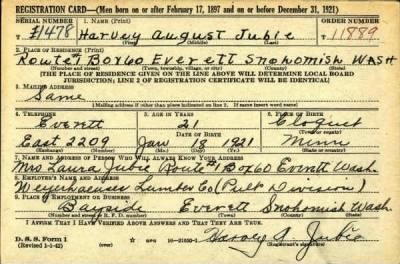 REGISTRATION CARD—(Men born on or after February 17, 1897 and on or before December 31, 1921)
SERIAL NUMBER 1. NAME (Print) ORDER NUMBER
1478 Harvey August Jubie 11889
(First) (Middle) (Last)
2. PLACE OF RESIDENCE (Print)
Route #1 Box 60 Everett Snohomish WASH
(Number and street) (Town, township, village, or city) (County) (State)
(THE PLACE OF RESIDENCE GIVEN ON THE LINE ABOVE WILL DETERMINE LOCAL BOARD
JURISDICTION; LINE 2 OF REGISTRATION CERTIFICATE WILL BE IDENTICAL)
3. MAILING ADDRESS
Same
(Mailing address if other than place indicated on line 2. If same insert word same)
4. TELEPHONE 5. AGE IN YEARS 6. PLACE OF BIRTH
Everett 21 Cloquet
DATE OF BIRTH
East 2209 Jan 18 1921 Minn
7. NAME AND ADDRESS OF PERSON WHO WILL ALWAYS KNOW YOUR ADDRESS
Mrs Laura Jubie Route #1 Box 60 Everett Wash.
8. EMPLOYER'S NAME AND ADDRESS
Weyerhaeuser Lumber Co (Pulp Division)
9. PLACE OF EMPLOYMENT OR BUSINESS
Bayside Everett Snohomish Wash.
(Number and street or R. F. D. number) (Town) (County) (State)
I AFFIRM THAT I HAVE VERIFIED ABOVE ANSWERS AND THAT THEY ARE TRUE.
D. S. S. Form 1
(Revised 1-1-42) Harvey A. Jubie